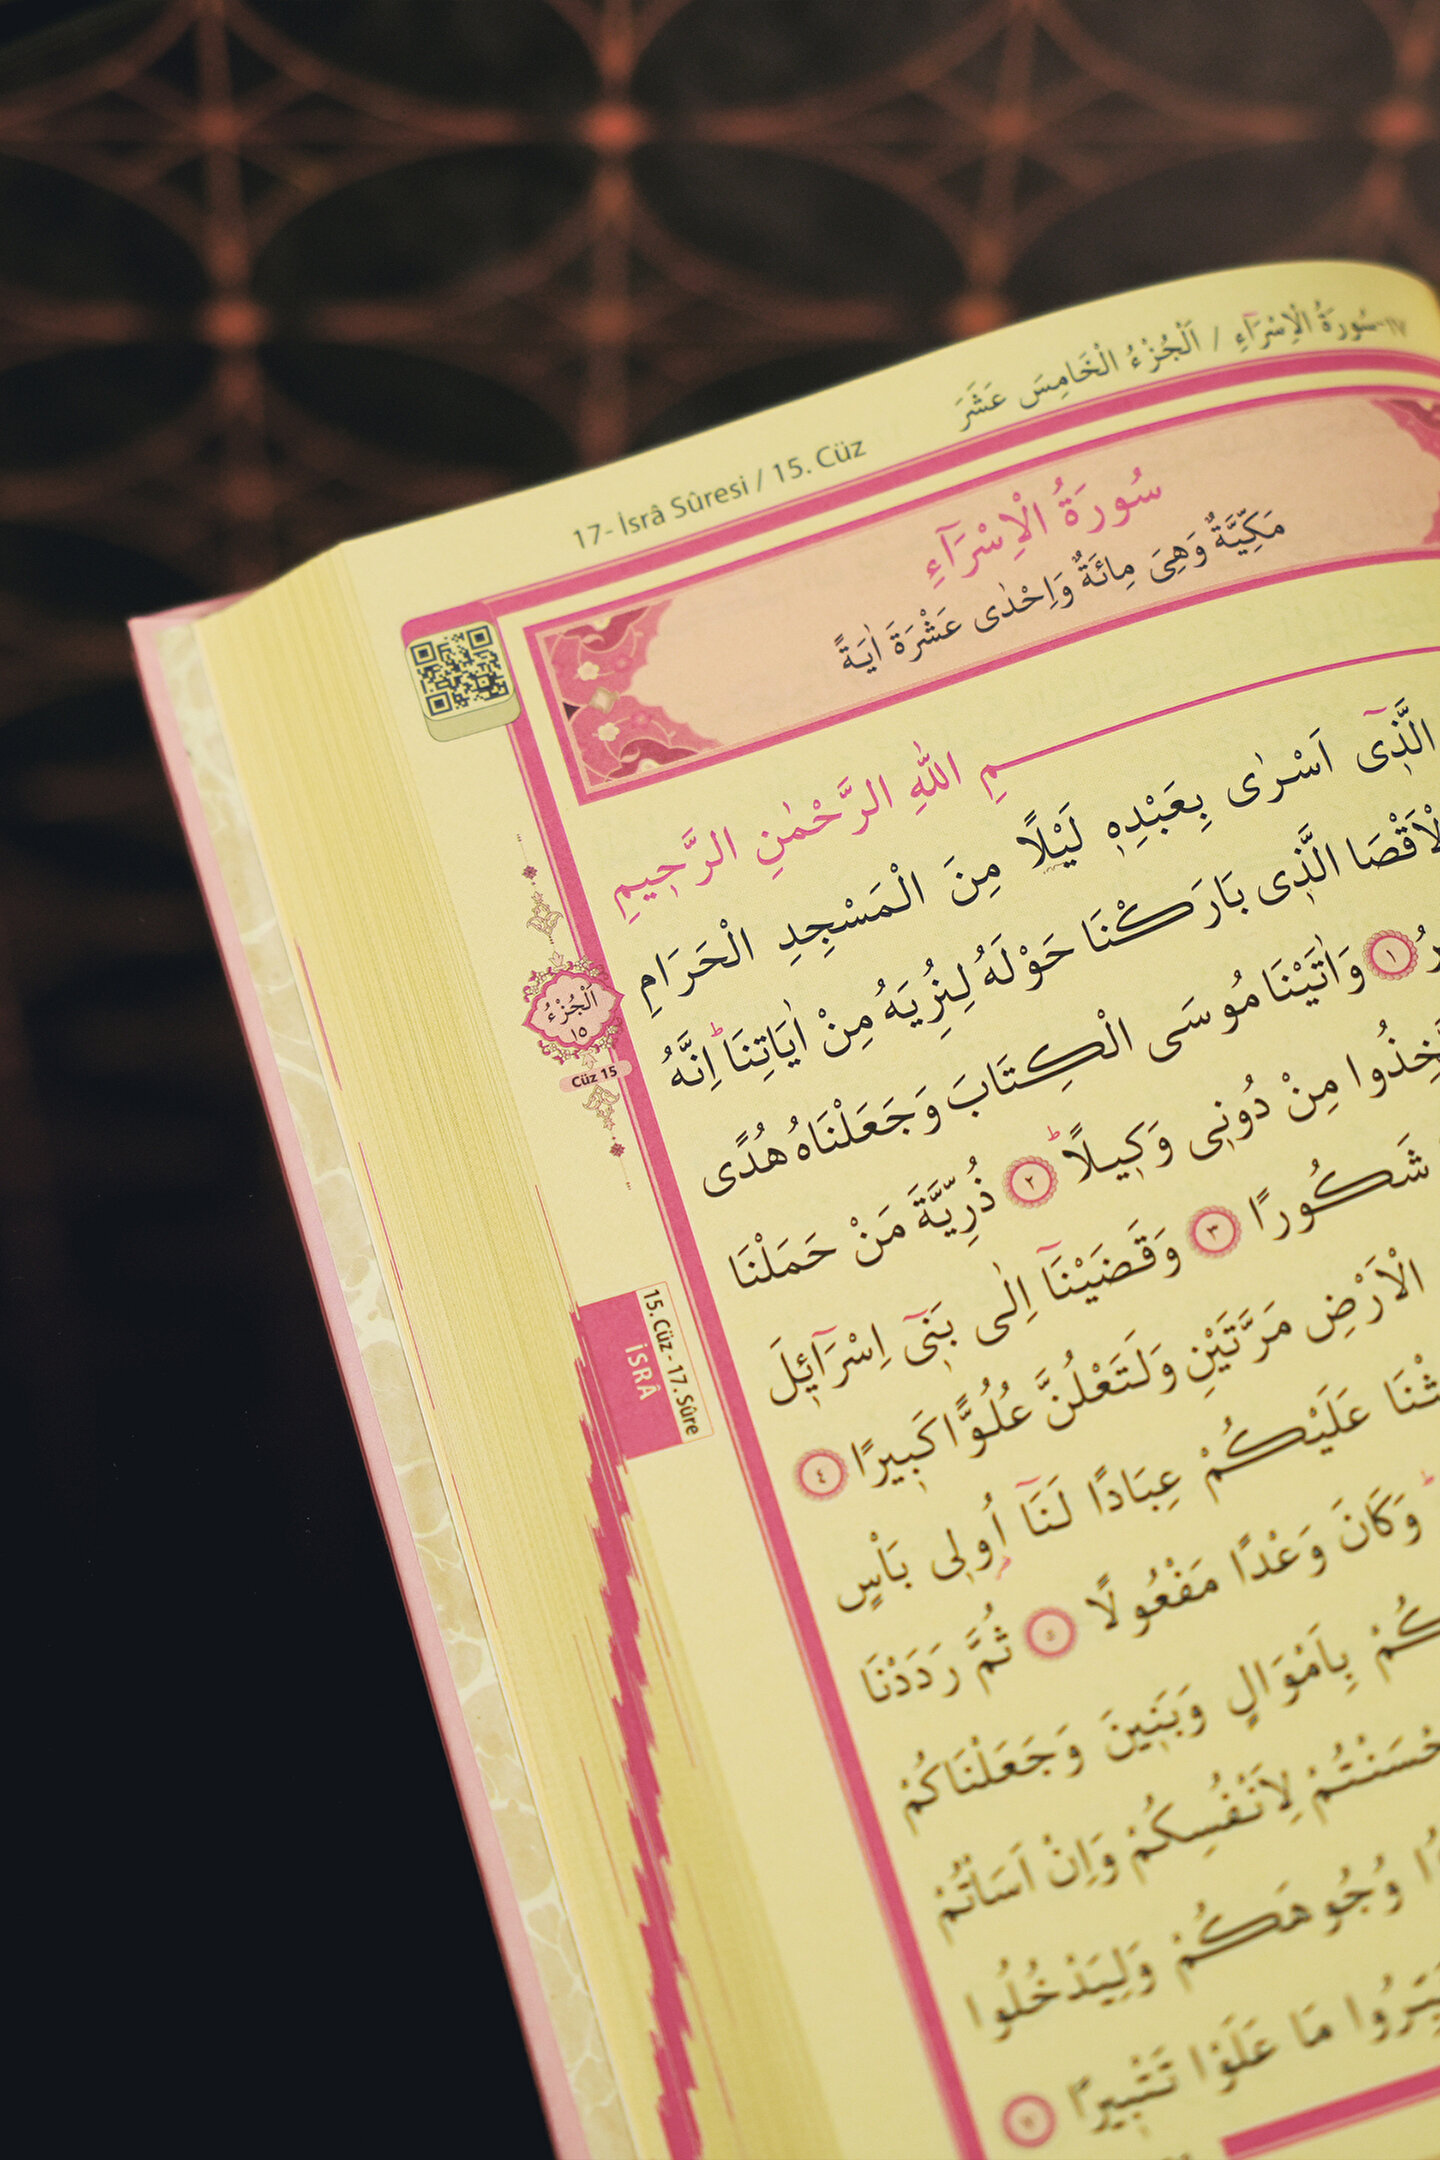 17- İsrâ Sûresi / 15. Cüz
١٧-سُورَةُ الْاِسْرَٓاءِ / اَلْجُزْءُ الْخَامِسَ عَشَرَ
سُورَةُ الْاِسْرَٓاءِ
مَكِّيَّةٌ وَهِىَ مِائَةٌ وَاِحْدٰى عَشْرَةَ اٰيَةً
ـــمِ اللّٰهِ الرَّحْمٰنِ الرَّحٖيمِ
الَّذٖٓى اَسْرٰى بِعَبْدِهٖ لَيْلًا مِنَ الْمَسْجِدِ الْحَرَامِ
لْاَقْصَا الَّذٖى بَارَكْنَا حَوْلَهُ لِنُرِيَهُ مِنْ اٰيَاتِنَاؕ اِنَّهُ
رُ ١ وَاٰتَيْنَا مُوسَى الْكِتَابَ وَجَعَلْنَاهُ هُدًى
تَّخِذُوا مِنْ دُونٖى وَكٖيلًاؕ ٢ ذُرِّيَّةَ مَنْ حَمَلْنَا
شَكُورًا ٣ وَقَضَيْنَٓا اِلٰى بَنٖٓى اِسْرَٓائٖلَ
الْاَرْضِ مَرَّتَيْنِ وَلَتَعْلُنَّ عُلُوًّا كَبٖيرًا ٤
ثْنَا عَلَيْكُمْ عِبَادًا لَنَٓا اُو۬لٖى بَاْسٍ
وَكَانَ وَعْدًا مَفْعُولًا ٥ ثُمَّ رَدَدْنَا
كُمْ بِاَمْوَالٍ وَبَنٖينَ وَجَعَلْنَاكُمْ
حْسَنْتُمْ لِاَنْفُسِكُمْ وَاِنْ اَسَاْتُمْ
وُجُوهَكُمْ وَلِيَدْخُلُوا
تَبِّرُوا مَا عَلَوْا تَتْبٖيرًا ٧
اَلْجُزْءُ
١٥
Cüz 15
15. Cüz - 17. Sûre
İSRÂ